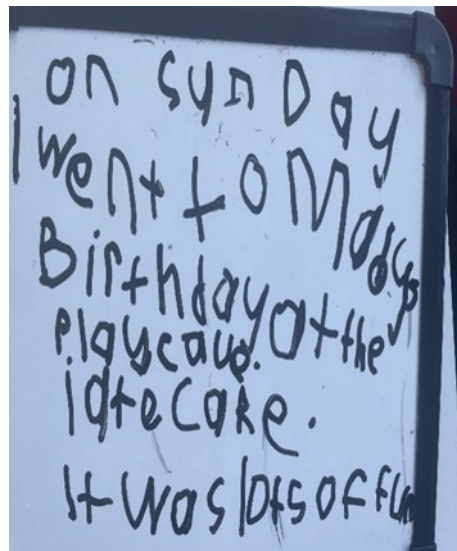 on sunDay
I went to Madys
Birthday at the
playscave.
i ate cake.
It was lots of fun